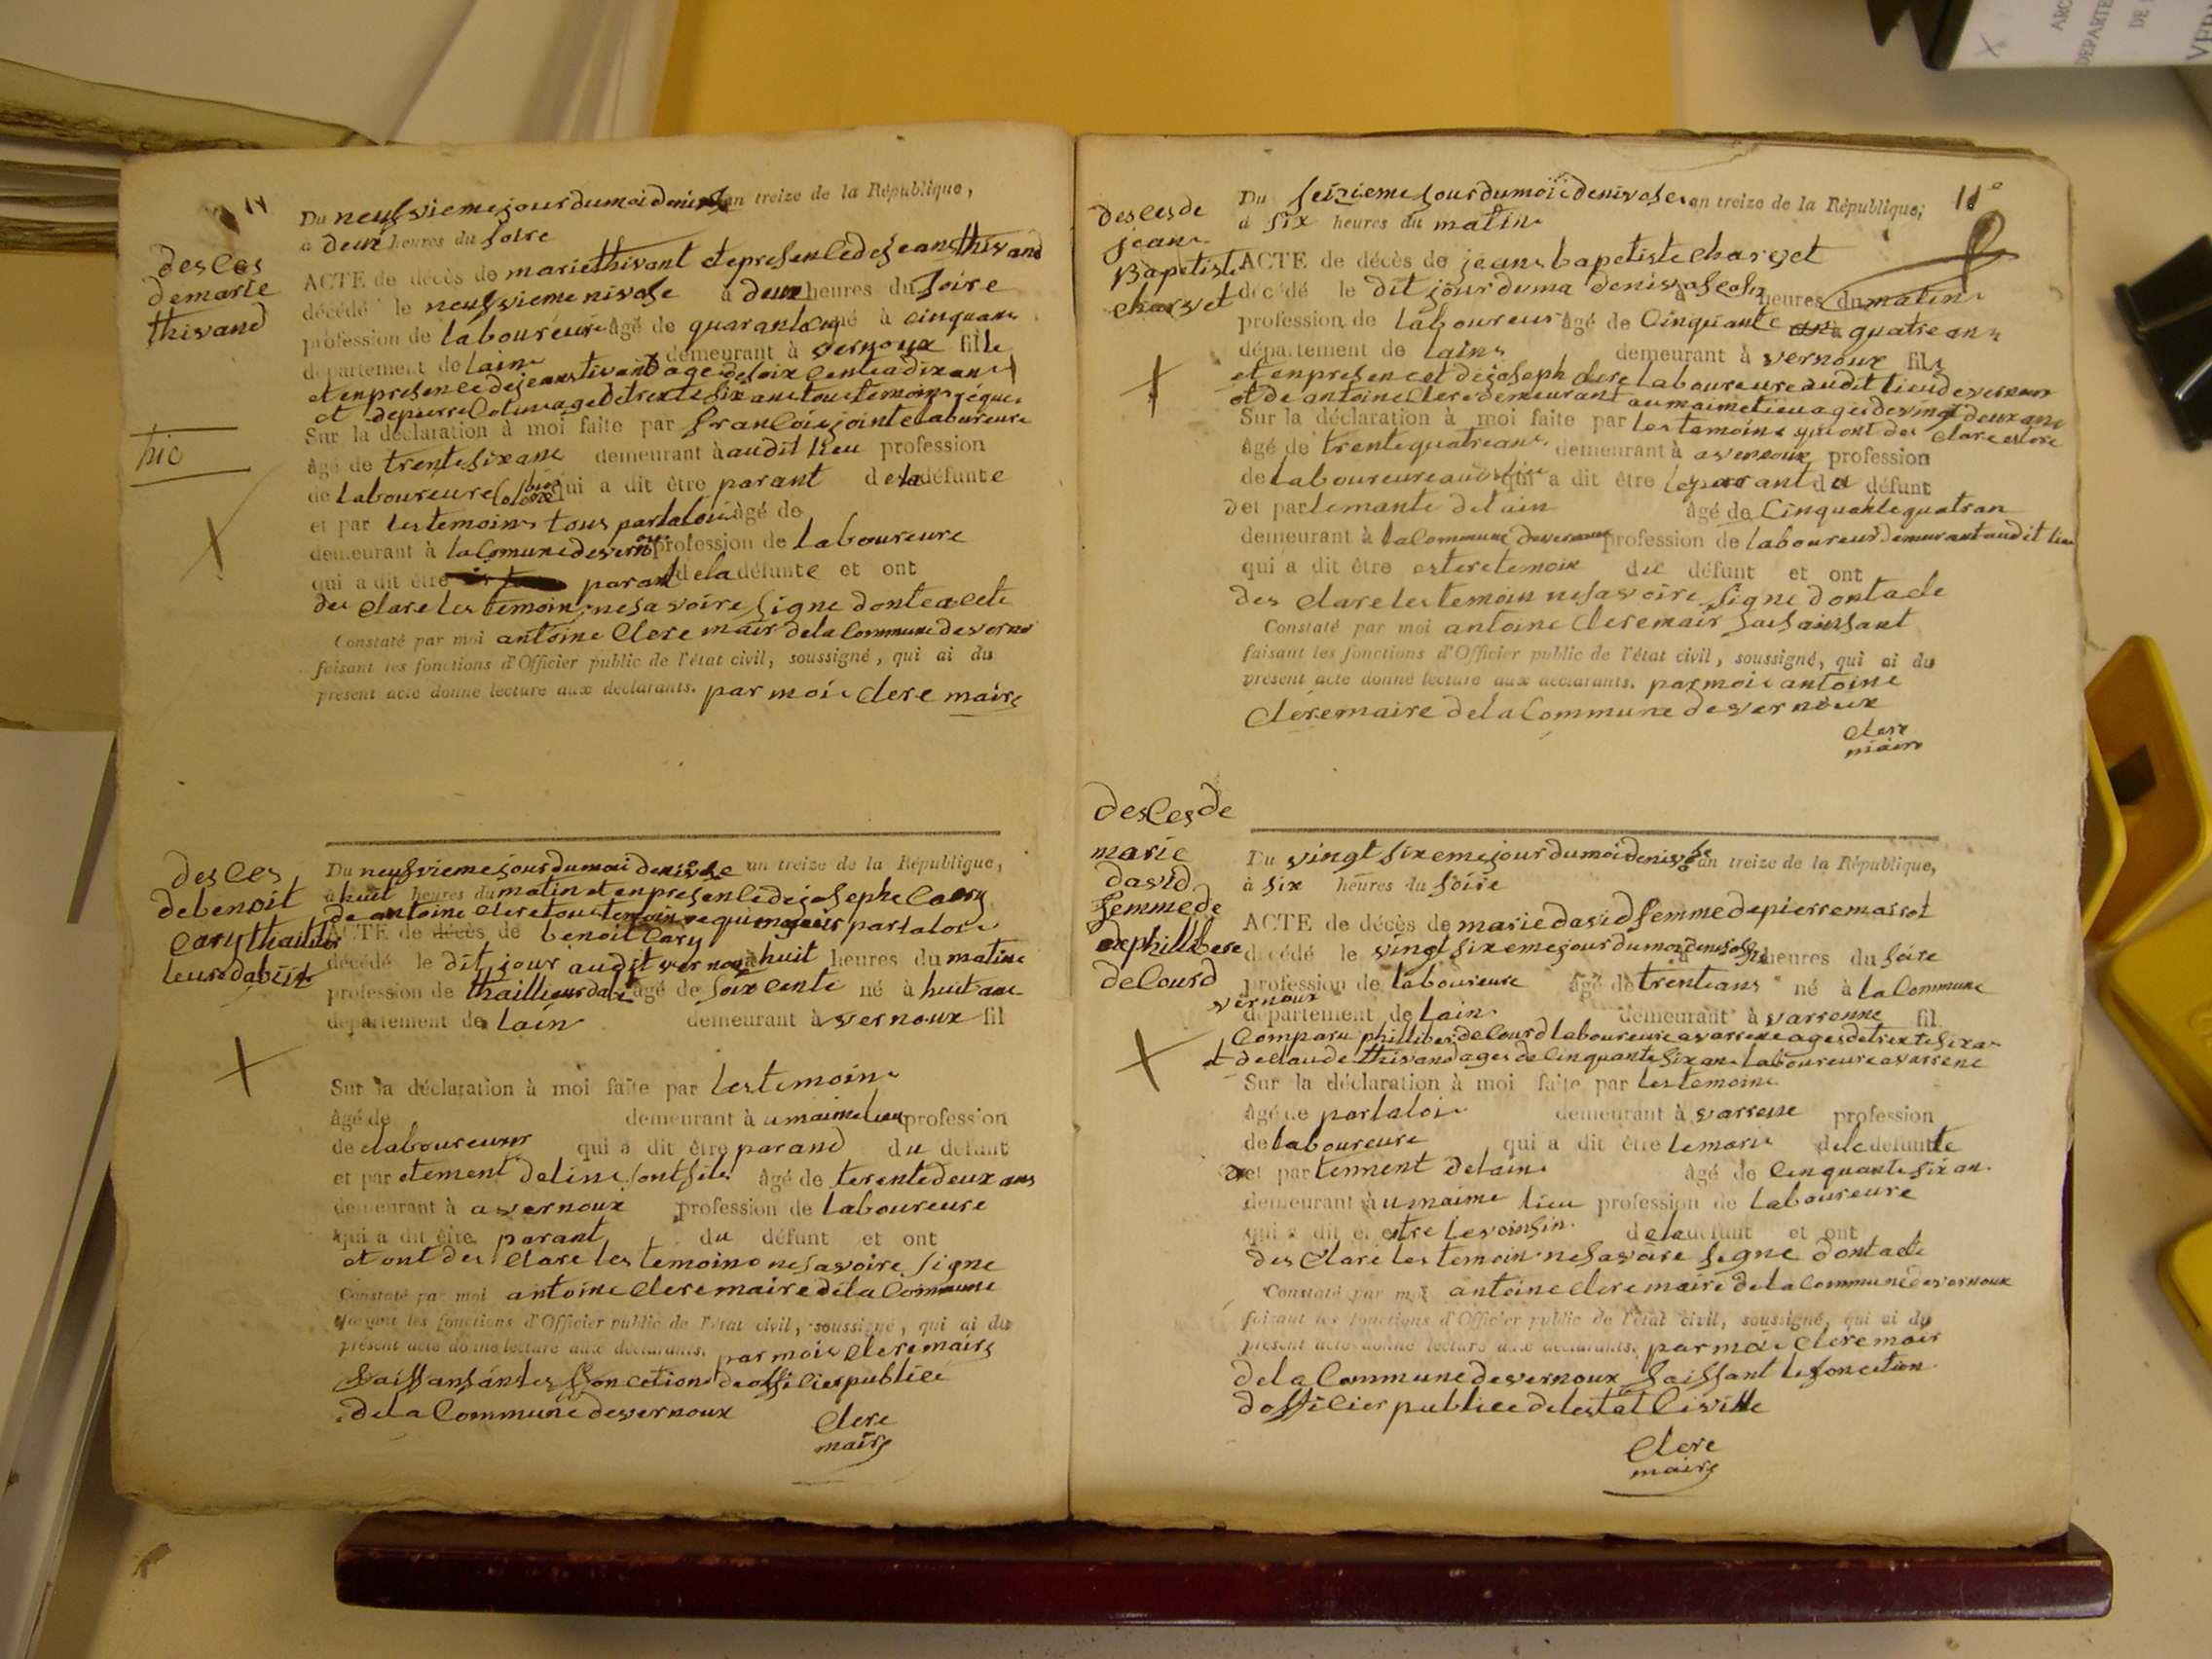 Du neufvieme jour du moi de nivose an treize de la République,
a deux heures du soire
desces
demarie
thivand
ACTE de décès de marie thivant et epresence de jean thivand
décédé le neufvieme nivose à deux heures du soire
profession de laboureure âgé de quarante né à cinquan
département de lain demeurant à vernoux fille
et en presence de jean tivand age de soixcente a dix ans
et de pierre Colin age de trente six ans tous temoins réquis
Sur la déclaration à moi faite par francois jointe laboureure
hic
âgé de trente six ans demeurant à audit lieu profession
de laboureure qui a dit être parant de la défunte
et par les temoins tous parlaloi âgé de
demeurant à la Comune de vernoux profession de laboureure
qui a dit être parant de la défunte et ont
des clare les temoins ne savoire signe dont acte
Constaté par moi antoine Clere mair de la Commune de verno
faisant les fonctions d'Officier public de l'état civil, soussigné, qui ai du
présent acte donné lecture aux déclarants. par moi Clere maire
desces
debenoit
Cary thaillieur
leur dabit
Du neufvieme jour du moi de nivose an treize de la République,
à huit heures du matin et en presence de josephe Cary
de antoine clere tous temoin requi majeur parlaloi
ACTE de décès de benoit Cary
décédé le dit jour audit vernou à huit heures du matin
profession de thaillieur dabi âgé de soixcente né à huit ans
département de lain demeurant à vernoux fil
Sur la déclaration à moi faite par les temoins
âgé de demeurant à u maime lieu profession
de laboureurs qui a dit être parand du défunt
et par âgé de terente deux ans
demeurant à a vernoux profession de laboureure
qui a dit être parant du défunt et ont
et ont des Clare les temoins ne savoire signe
Constaté par moi antoine Clere maire de la Commune
faisant les fonctions d'Officier public de l'état civil, soussigné, qui ai du
présent acte donné lecture aux déclarants. par moi Clere maire
faissansant les fonction de officier publice
de la Commune de vernoux
Clere
maire
11e
desces de
jean
Bapetiste
charvet
Du seizieme jour du moi de nivose an treize de la République,
à six heures du matin
ACTE de décès de jean bapetiste Charvet
décédé le dit jour du ma de nivose à heures du matin
profession de laboureur âgé de Cinquante quatre an
département de lain demeurant à vernoux fils
et en presence de joseph clere laboureure audit lieu de vernoux
et de antoine clere demeurant au maime lieu ages de vingt deux ans
Sur la déclaration à moi faite par les temoins qui ont des clare
âgé de trente quatre ans demeurant à a vernoux profession
de laboureure audit lieu qui a dit être le parant du défunt
det partemante de lain âgé de Cinquante quatran
demeurant à la Commune de vernoux profession de laboureur demurant audit lieu
qui a dit être du défunt et ont
des clare les temoin ne savoire signe dont acte
Constaté par moi antoine Clere mair
faisant les fonctions d'Officier public de l'état civil, soussigné, qui ai du
présent acte donné lecture aux déclarants. par moi antoine
Clere maire de la Commune de vernoux
Clere
maire
desces de
marie
david
femme de
phillibere
delourd
Du vingt sixeme jour du moi de nivose an treize de la République,
à six heures du soire
ACTE de décès de marie david femme de pierre marrot
décédé le vingt sixeme jour du moi de nivose à heures du soire
profession de laboureure âgé de trente ans né à la Commune
vernoux
département de lain demeurant à varenne fil
Comparu philliber delourd laboureure a varrene ages de trente six an
et de claude thivand ages de Cinquante six ans laboureure a varrene
Sur la déclaration à moi faite par les temoins
âgé de parlaloi demeurant à varrene profession
de laboureure qui a dit être le marie de le défunte
det partement de lain âgé de Cinquante six an
demeurant à u maime lieu profession de laboureure
qui a dit être le voinsin de la défunt et ont
des Clare les temoin ne savoire signe dont acte
Constaté par moi antoine Clere maire de la Commune de vernoux
faisant les fonctions d'Officier public de l'état civil, soussigné, qui ai du
présent acte donné lecture aux déclarants. par moi Clere mair
de la Commune de vernoux faissant le fonction
dofficier publice de lestat Civille
Clere
maire